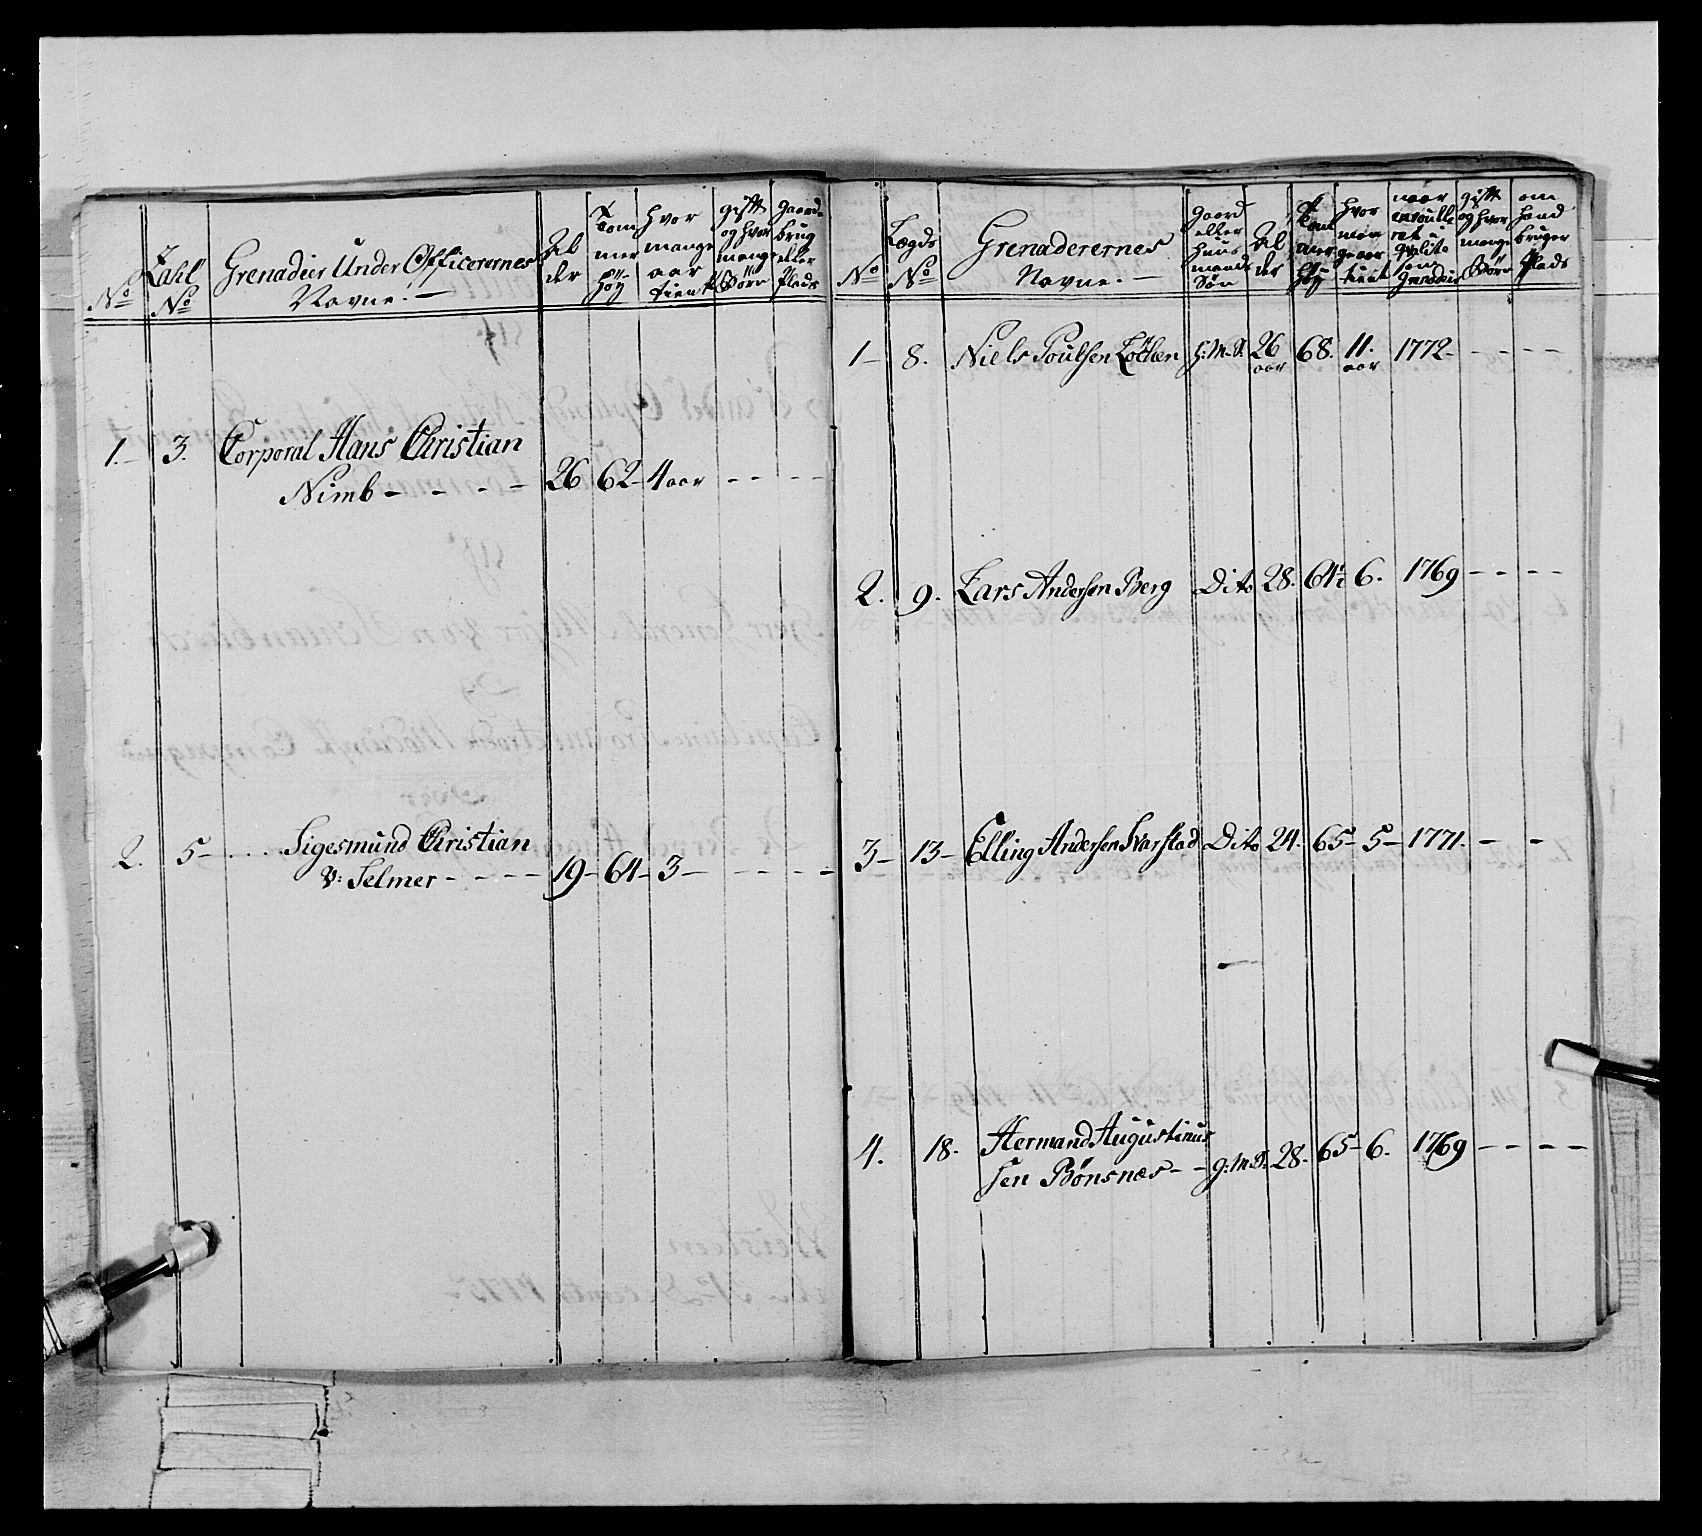 No
Zahl No
Grenadier Under Officerernes
Navne.
Al der
Tommer höy
hvor mange aar tient
gifft og hvor mange Börn
gaard brug eller Plads
1. 3. Corporal Hans Christian
Nimb - - - - 26 62 - 4 aar - - - -
2. 5 - . . . . Sigesmund Christian
v: Selmer - - - - 19 - 64 - 3 - - - - -
No
Lægds No
Grenaderernes
Navne.
gaard eller huus mands Sön
Al der
Tommer höy
hvor
naar enroulleret
som Grenadeer
gift og hvor mange Börn
om hand bruger Plads
1 - 8. Niels Poulsen h: M. S. 26 aar 68. 11. aar 1772 - - - - -
2. 9. Lars Andersen Berg Dito 28. 64½ 6. 1769 - - - -
3 - 13 - Elling Andersen Svarstad Dito 24. 65 - 5 - 1771. - -
4. 18. Hermand Augustinus
sen Bönsnæs - - g: M. S. 28. 65 - 6. 1769 - - - -